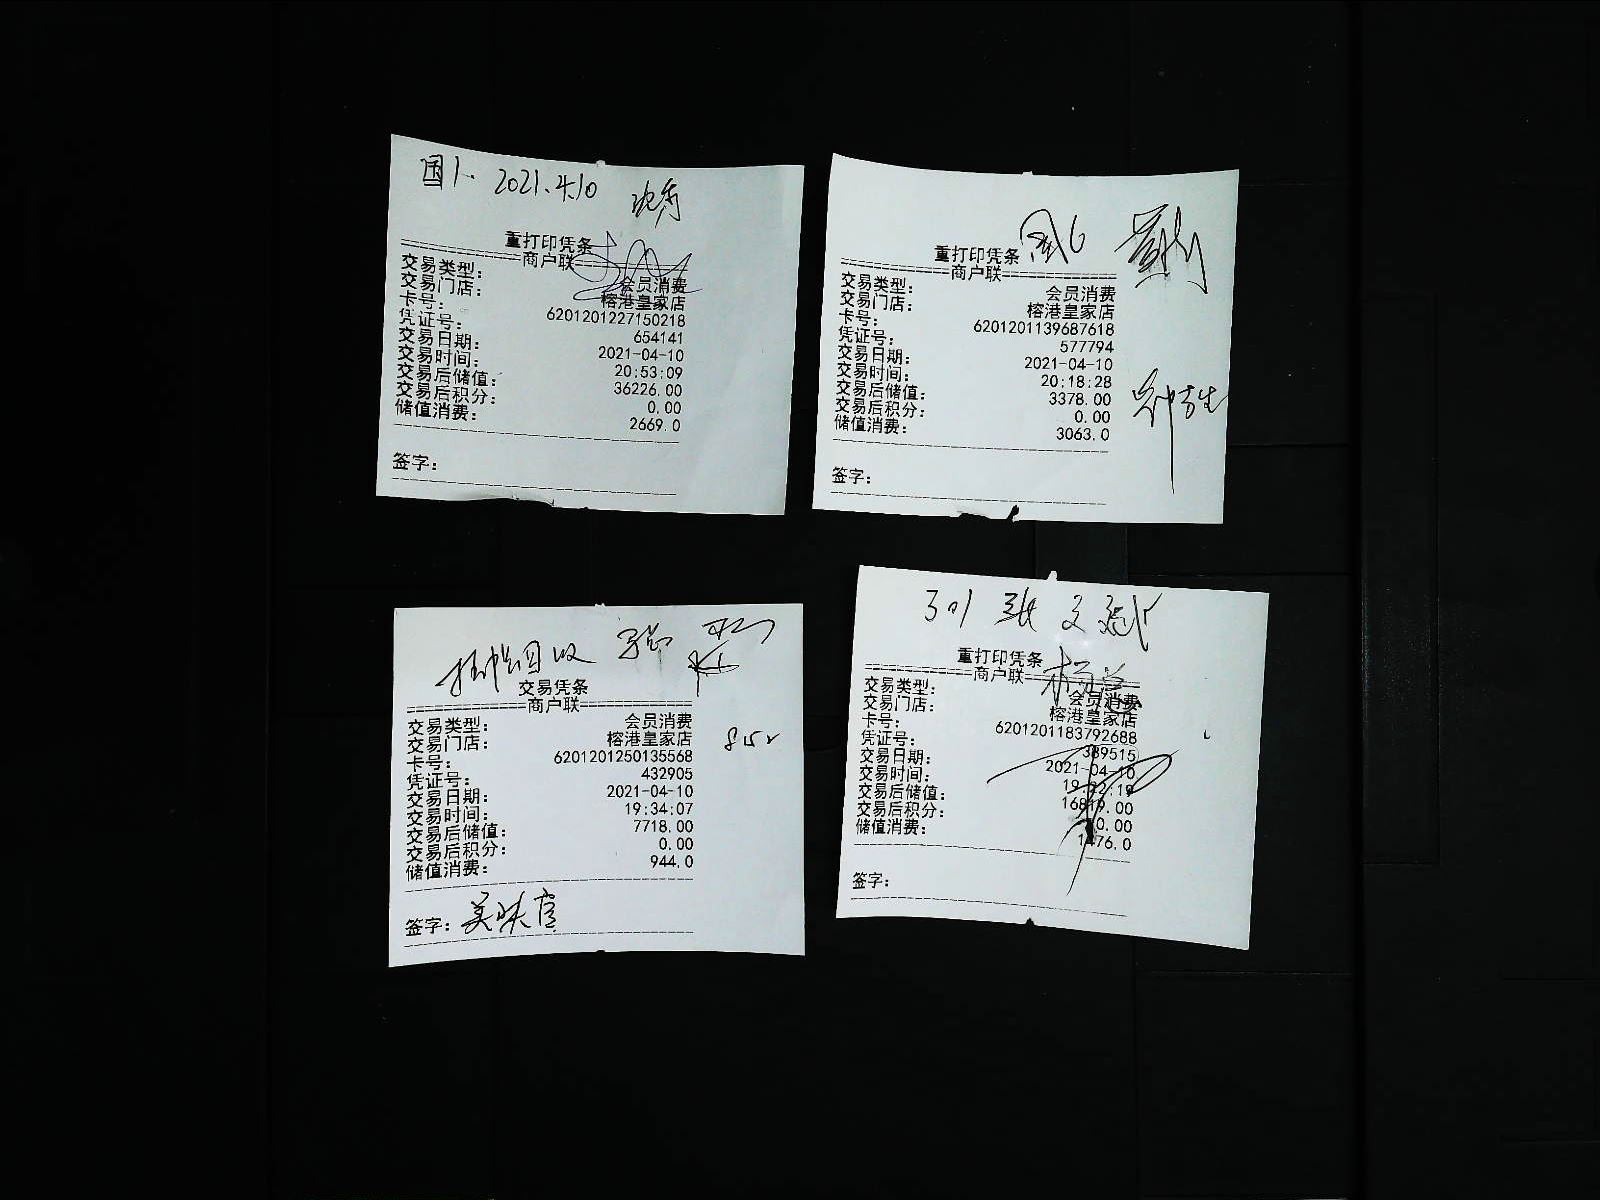 国1. 2021.4.10
重打印凭条
商户联
交易类型: 会员消费
交易门店: 榕港皇家店
卡号: 6201201227150218
凭证号: 654141
交易日期: 2021-04-10
交易时间: 20:53:09
交易后储值: 36226.00
交易后积分: 0.00
储值消费: 2669.0
签字:
重打印凭条
商户联
交易类型: 会员消费
交易门店: 榕港皇家店
卡号: 6201201139687618
凭证号: 577794
交易日期: 2021-04-10
交易时间: 20:18:28
交易后储值: 3378.00
交易后积分: 0.00
储值消费: 3063.0
签字:
交易凭条
商户联
交易类型: 会员消费
交易门店: 榕港皇家店
卡号: 6201201250135568
凭证号: 432905
交易日期: 2021-04-10
交易时间: 19:34:07
交易后储值: 7718.00
交易后积分: 0.00
储值消费: 944.0
签字: 美味官
301 张文斌
重打印凭条
商户联
交易类型: 会员消费
交易门店: 榕港皇家店
卡号: 6201201183792688
凭证号: 389515
交易日期: 2021-04-10
交易时间:
交易后储值: 16819.00
交易后积分: 0.00
储值消费:
签字: